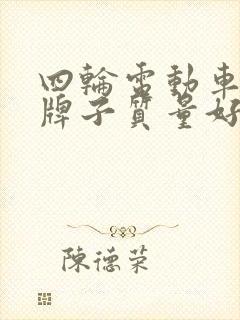 四輪電動車
牌子質量好
陳德荣